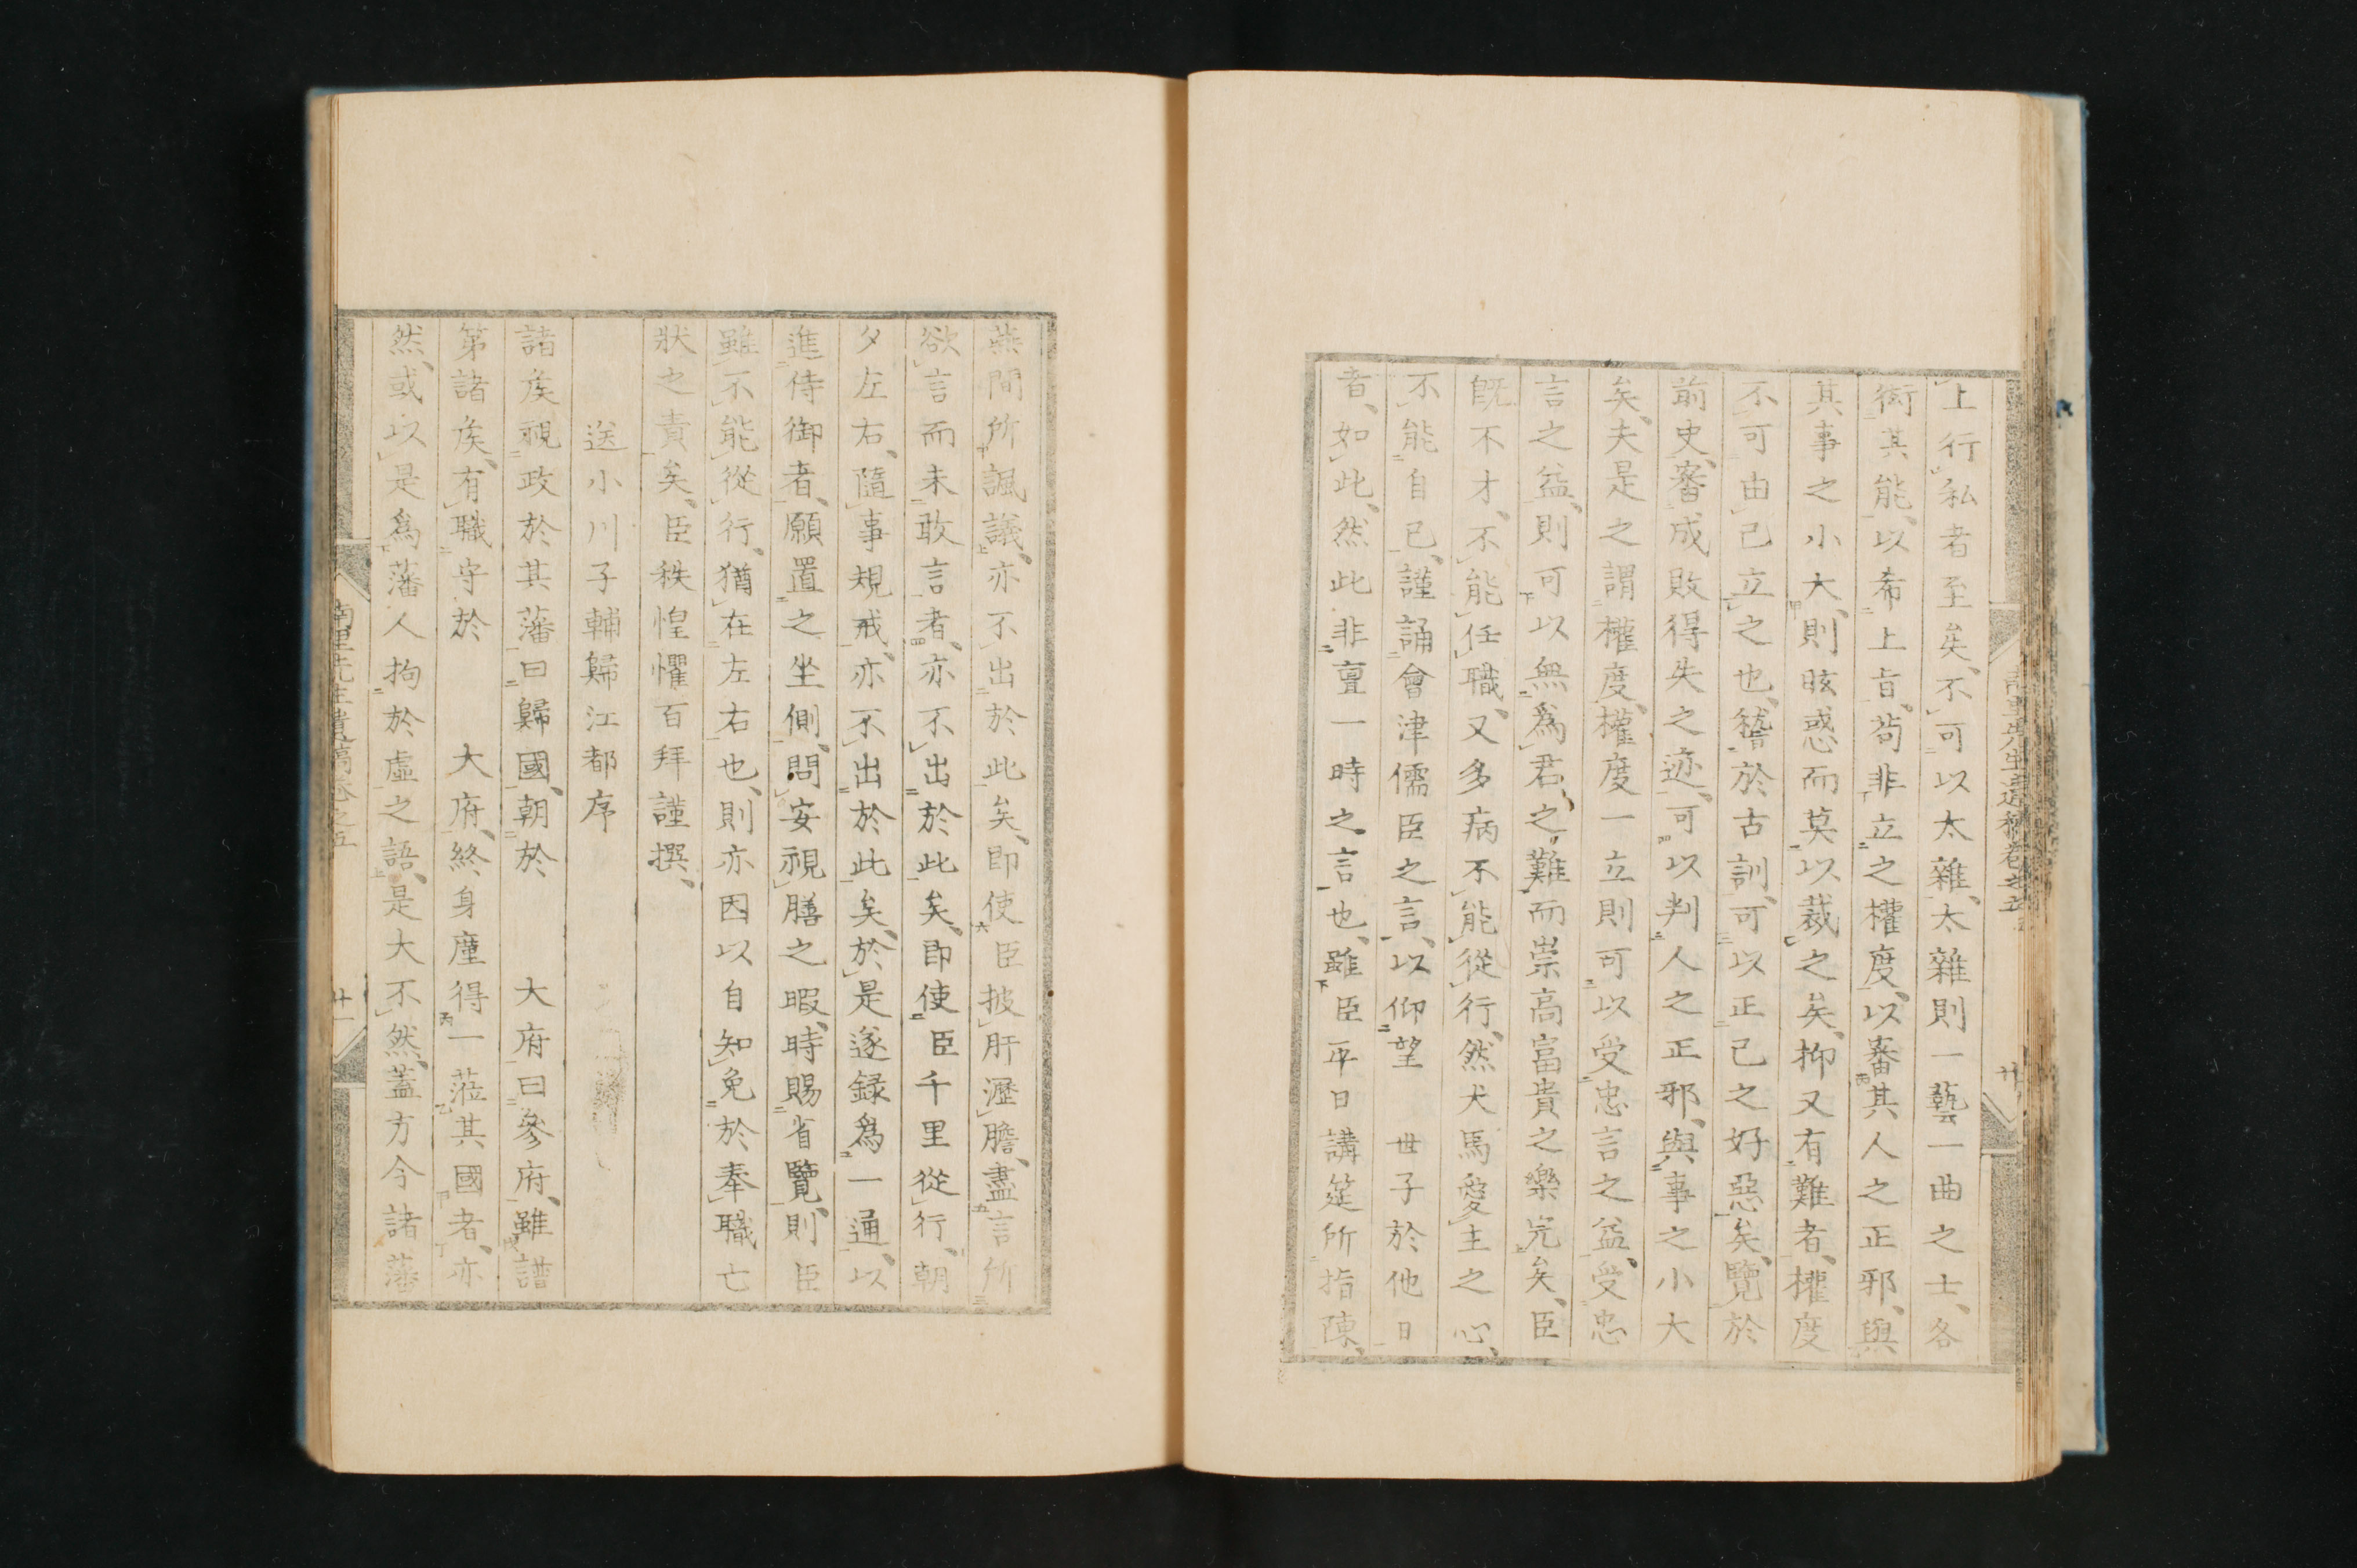 上行私者至矣、不可以太雜、太雜則一藝一曲之士、各
衒其能、以希上旨、苟非立之權度、以審其人之正邪、與
其事之小大、則眩惑而莫以裁之矣、抑又有難者、權度
不可由己立之也、稽於古訓、可以正己之好惡矣、覽於
前史、審成敗得失之迹、可以判人之正邪、與事之小大
矣、夫是之謂權度、權度一立則可以受忠言之益、受忠
言之益、則可以無爲君之難而崇高富貴之樂完矣、臣
既不才、不能任職、又多病不能從行、然犬馬愛主之心、
不能自已、謹誦會津儒臣之言、以仰望　世子於他日
者、如此、然此非亶一時之言也、雖臣平日講筵所指陳、
燕間所諷議、亦不出於此矣、即使臣披肝瀝膽、盡言所
欲言而未敢言者、亦不出於此矣、即使臣千里從行、朝
夕左右、隨事規戒、亦不出於此矣、於是遂録爲一通、以
進侍御者、願置之坐側、問安視膳之暇、時賜省覽、則臣
雖不能從行、猶在左右也、則亦因以自知免於奉職亡
狀之責矣、臣秩惶懼百拜謹撰、
送小川子輔歸江都序
諸矦視政於其藩曰歸國、朝於　大府曰參府、雖譜
第諸矦、有職守於　大府、終身廑得一蒞其國者、亦
然、或以是爲藩人拘於虛之語、是大不然、蓋方今諸藩
南里先生遺稿卷之五
廿一